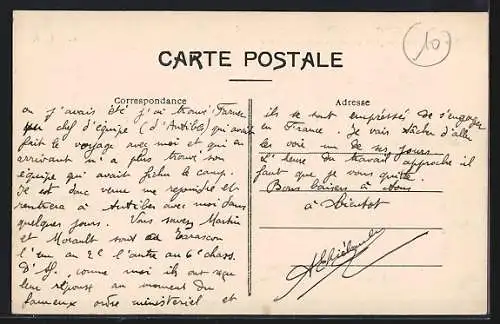 10
CARTE POSTALE
Correspondance
Adresse
ou j'avais été j'ai trouvé
chef d'équipe (d'Antibes) qui avait
fait le voyage avec moi et qui en
arrivant n'a plus trouvé son
équipe qui avait fichu le camp.
Il est donc venu me rejoindre et
rentrera à Antibes avec moi dans
quelques jours. Vous savez Martin
et Morault sont à Tarascon
l'un au 2e l'autre au 6e chass.
d'Af, comme moi ils ont reçu
leur réponse au moment du
fameux ordre ministériel et
ils se sont empressés de s'engager
en France. Je vais tâcher d'aller
les voir un de ses jours
L'heure du travail approche il
faut que je vous quitte.
Bons baisers à tous
à bientôt